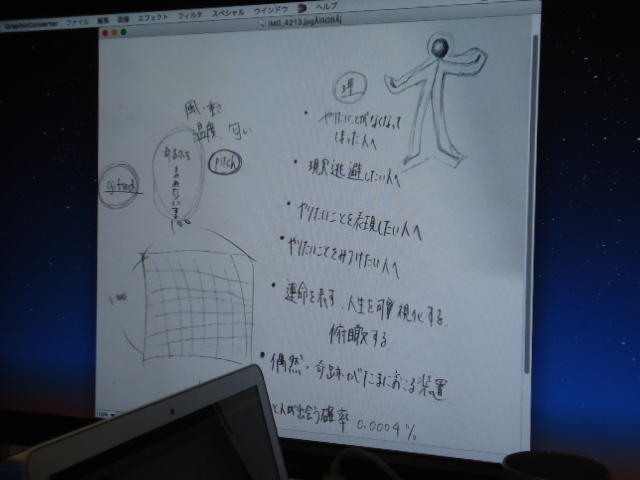 GraphicConverter ファイル 編集 画像 エフェクト フィルタ スペシャル ウインドウ ヘルプ
IMG_4213.jpg
風・動き
温度 匂い
奇跡を
pitch
100
100
・やりたいことがなくなって
しまった人へ
・現実逃避したい人へ
・やりたいことを表現したい人へ
・やりたいことをみつけたい人へ
・運命を表す、人生を可視化する、
俯瞰する
・偶然・奇跡がたまにおこる装置
人が出会う確率 0.0004%